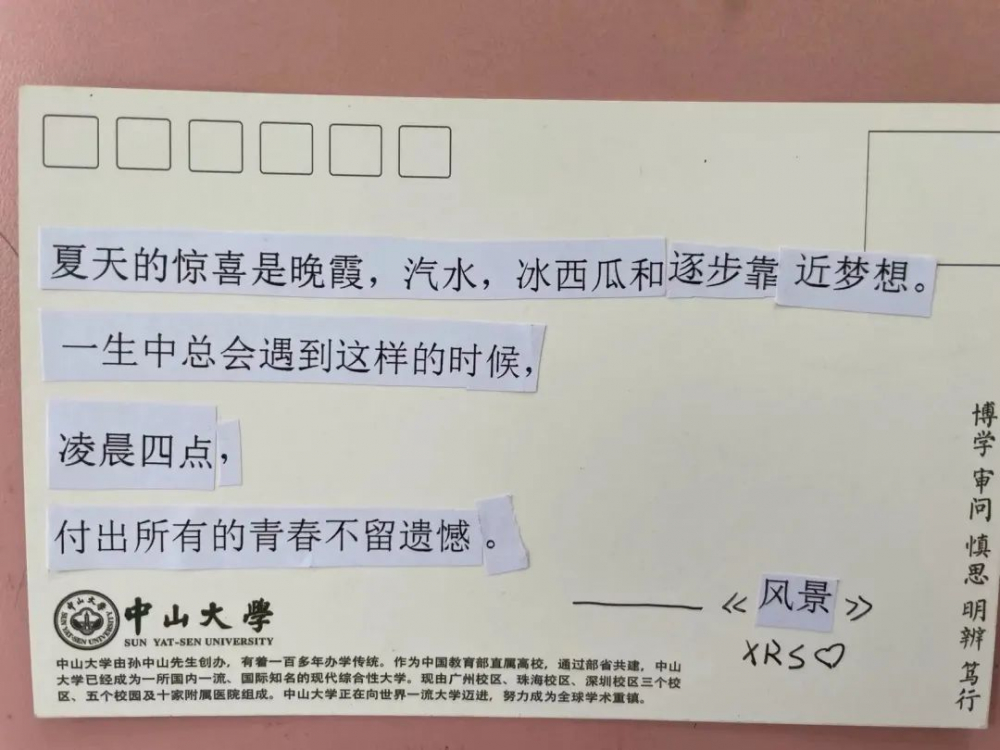 夏天的惊喜是晚霞，汽水，冰西瓜和逐步靠近梦想。
一生中总会遇到这样的时候，
凌晨四点，
付出所有的青春不留遗憾。
——《风景》
XRS♡
中山大學
SUN YAT-SEN UNIVERSITY
中山大学由孙中山先生创办，有着一百多年办学传统。作为中国教育部直属高校，通过部省共建，中山
大学已经成为一所国内一流、国际知名的现代综合性大学。现由广州校区、珠海校区、深圳校区三个校
区、五个校园及十家附属医院组成。中山大学正在向世界一流大学迈进，努力成为全球学术重镇。
博学 审问 慎思 明辨 笃行